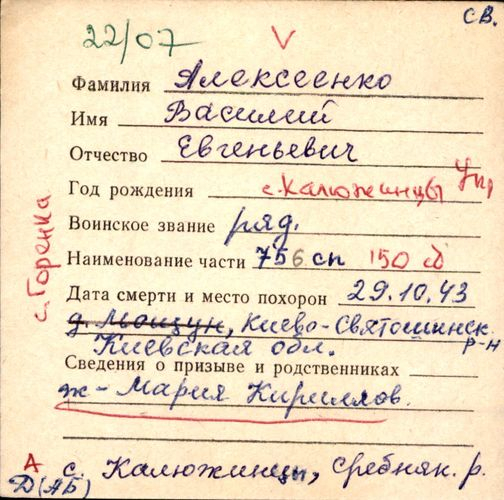 св.
22/07 V
Фамилия Алексеенко
Имя Василий
Отчество Евгеньевич
Год рождения с. Калюжинцы Укр
Воинское звание ряд.
Наименование части 756 сп 150 сд
Дата смерти и место похорон 29.10.43
д. Мощун, Киево-Святошинск.
Киевская обл. р-н
Сведения о призыве и родственниках
ж - Мария Кириллов.
с. Калюжинцы, Сребнян. р.
А
Д(АБ)
с. Горенка